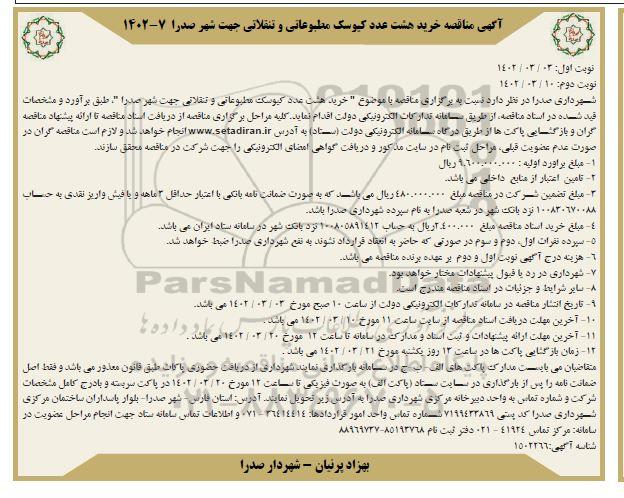 آگهی مناقصه خرید هشت عدد کیوسک مطبوعاتی و تنقلاتی جهت شهر صدرا ۷-۱۴۰۲
نوبت اول: ۰۳ / ۰۳ / ۱۴۰۲
نوبت دوم: ۱۰ / ۰۳ / ۱۴۰۲
شهرداری صدرا در نظر دارد نسبت به برگزاری مناقصه با موضوع " خرید هشت عدد کیوسک مطبوعاتی و تنقلاتی جهت شهر صدرا "، طبق برآورد و مشخصات
قید شده در اسناد مناقصه، از طریق سامانه تدارکات الکترونیکی دولت اقدام نماید.کلیه مراحل برگزاری مناقصه از دریافت اسناد مناقصه تا ارائه پیشنهاد مناقصه
گران و بازگشایی پاکت ها از طریق درگاه سامانه الکترونیکی دولت (ستاد) به آدرس www.setadiran.ir انجام خواهد شد و لازم است مناقصه گران در
صورت عدم عضویت قبلی، مراحل ثبت نام در سایت مذکور و دریافت گواهی امضای الکترونیکی را جهت شرکت در مناقصه محقق سازند.
۱- مبلغ براورد اولیه : ۹.۶۰۰.۰۰۰.۰۰۰ ریال
۲- تامین اعتبار از منابع داخلی می باشد.
۳- مبلغ تضمین شرکت در مناقصه مبلغ ۴۸۰.۰۰۰.۰۰۰ ریال می باشد که به صورت ضمانت نامه بانکی با اعتبار حداقل ۳ ماهه و یا فیش واریز نقدی به حساب
۱۰۰۸۳۰۶۷۰۰۸۸ نزد بانک شهر در شعبه صدرا به نام سپرده شهرداری صدرا باشد.
۴- مبلغ خرید اسناد مناقصه مبلغ ۲.۴۰۰.۰۰۰ریال به حساب ۱۰۰۸۰۵۸۹۱۴۱۲ نزد بانک شهر در سامانه ستاد ایران می باشد.
۵- سپرده نفرات اول، دوم و سوم در صورتی که حاضر به انعقاد قرارداد نشوند به نفع شهرداری صدرا ضبط خواهد شد.
۶- هزینه درج آگهی نوبت اول و دوم بر عهده برنده مناقصه می باشد.
۷- شهرداری در رد یا قبول پیشنهادات مختار خواهد بود.
۸- سایر شرایط و جزئیات در اسناد مناقصه مندرج است.
۹- تاریخ انتشار مناقصه در سامانه تدارکات الکترونیکی دولت از ساعت ۱۰ صبح مورخ ۰۳ / ۰۳ / ۱۴۰۲ می باشد.
۱۰- آخرین مهلت دریافت اسناد مناقصه از سایت ساعت ۱۱ مورخ ۱۰ / ۰۳ / ۱۴۰۲ می باشد .
۱۱- آخرین مهلت ارائه پیشنهادات و ثبت اسناد و مدارک در سامانه تا ساعت ۱۲ مورخ ۲۰ / ۰۳ / ۱۴۰۲ می باشد .
۱۲- زمان بازگشایی پاکت ها در ساعت ۱۲ روز یکشنبه مورخ ۲۱ / ۰۳ / ۱۴۰۲ می باشد .
متقاضیان می بایست مدارک پاکت های الف -ب -ج در سامانه بارگذاری نمایند.شهرداری از دریافت حضوری پاکات طبق قانون معذور می باشد و فقط اصل
ضمانت نامه را پس از بارگذاری در سایت ستاد (پاکت الف) به صورت فیزیکی تا ساعت ۱۲ مورخ ۲۰ / ۰۳ / ۱۴۰۲ در پاکت سربسته و بادرج کامل مشخصات
شرکت و شماره تماس به واحد دبیرخانه مرکزی شهرداری صدرا به آدرس زیر تحویل نمایند. آدرس: استان فارس- شهر صدرا- بلوار پاسداران ساختمان مرکزی
شهرداری صدرا کد پستی ۷۱۹۹۴۳۳۸۶۹ شماره تماس واحد امور قراردادها: ۳۶۴۱۴۴۱۴ - ۰۷۱ و اطلاعات تماس سامانه ستاد جهت انجام مراحل عضویت در
سامانه: مرکز تماس ۴۱۹۳۴ - ۰۲۱ دفتر ثبت نام ۸۵۱۹۳۷۶۸-۸۸۹۶۹۷۳۷
شناسه آگهی:۱۵۰۲۲۶۶
بهزاد پرنیان - شهردار صدرا
ParsNamadData